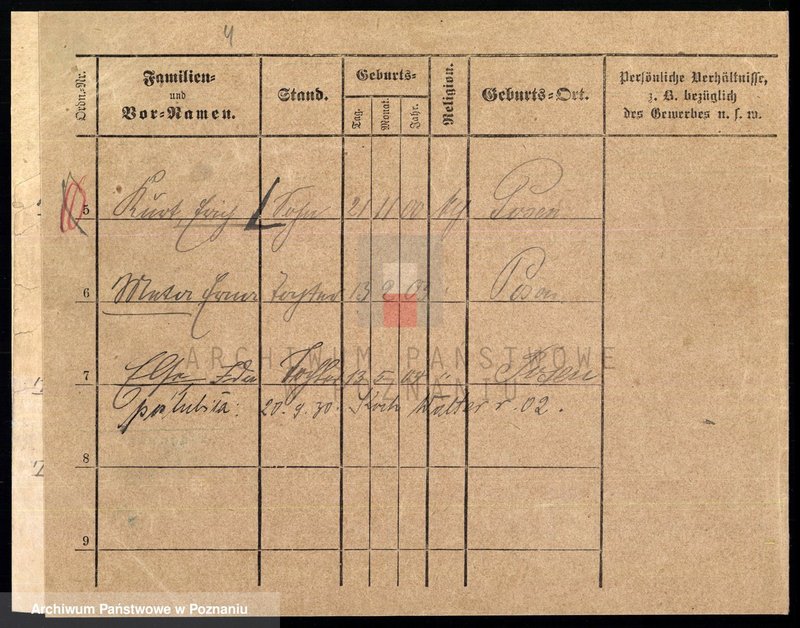 4
Ordn.-Nr.
Familien-
und
Vor-Namen.
Stand.
Geburts-
Tag.
Monat.
Jahr.
Religion.
Geburts-Ort.
Persönliche Verhältnisse,
z. B. bezüglich
des Gewerbes u. s. w.
5 Kurt, Erich Sohn 21 11 00 Posen
6 Meta Erna Tochter 13 9 03 " Posen
7 Else Ida Tochter 13 5 08 " Posen
poślubiła: 20. 9. 30. Koch Walter r. 02.
8
9
ARCHIWUM PAŃSTWOWE
W POZNANIU
Archiwum Państwowe w Poznaniu